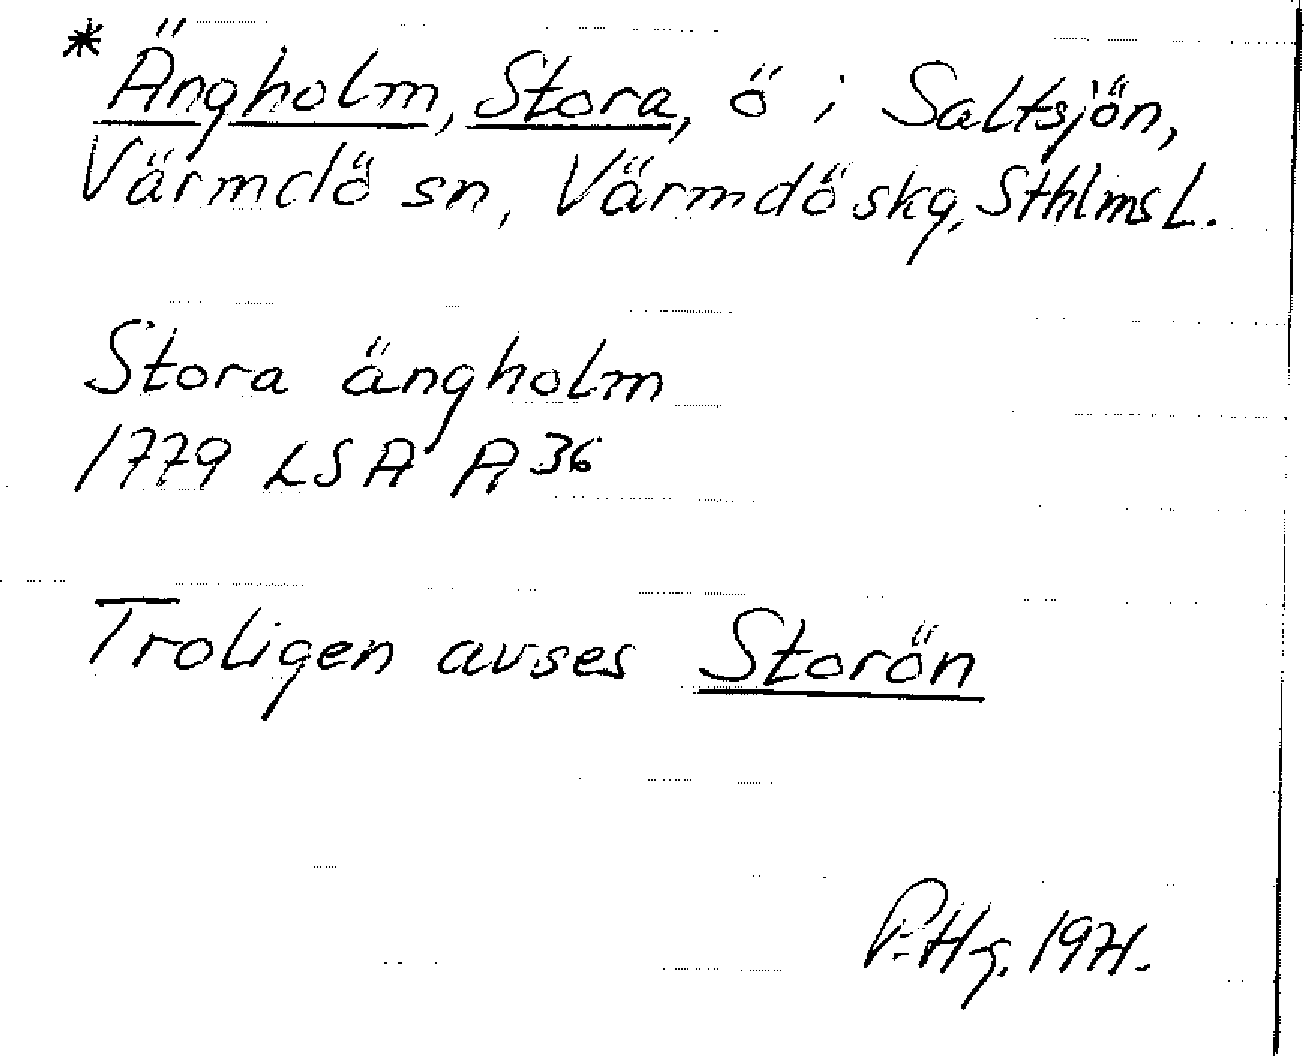 * Ängholm, Stora, ö i Saltsjön,
Värmdö sn, Värmdö skg, Sthlms L.
Stora ängholm
1779 LSA A 36
Troligen avses Storön
P.Hg. 1971.